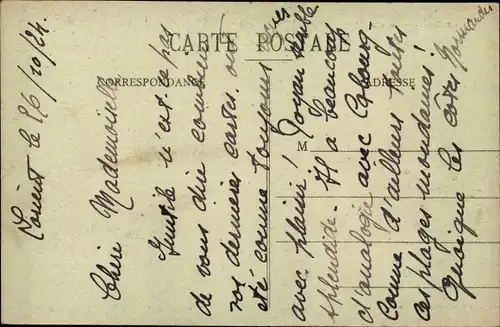 CARTE POSTALE
CORRESPONDANCE
ADRESSE
M
Lorient le 26/10/24.
Chère Mademoiselle
Inutile n'est ce pas
de vous dire combien
vos dernières cartes ont
été comme toujours reçues
avec plaisir! Royan semble
splendide. Il a beaucoup
d'analogie avec Cabourg
comme d'ailleurs toutes
ces plages mondaines!
Quoique les côtes Normandes